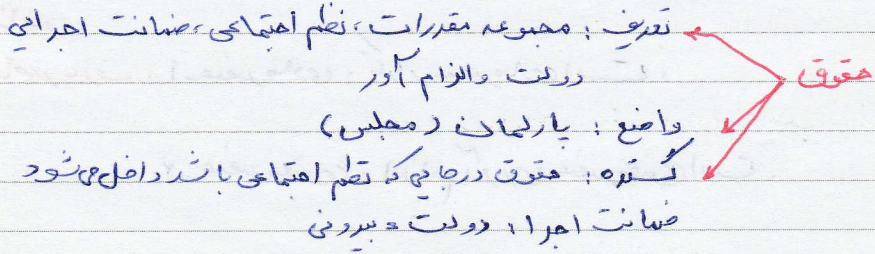 حقوق
تعریف : مجموعه مقررات، نظم اجتماعی، ضمانت اجرایی
دولت والزام آور
واضع : پارلمان (مجلس)
گستره : حقوق درجایی که نظم اجتماعی باشد داخل می شود
ضمانت اجرا : دولت و بیرونی